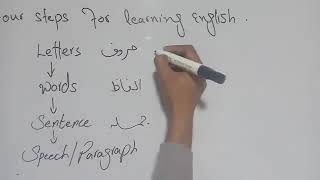 our steps for learning English.
Letters حروف
Words الفاظ
Sentence جملہ
Speech/Paragraph